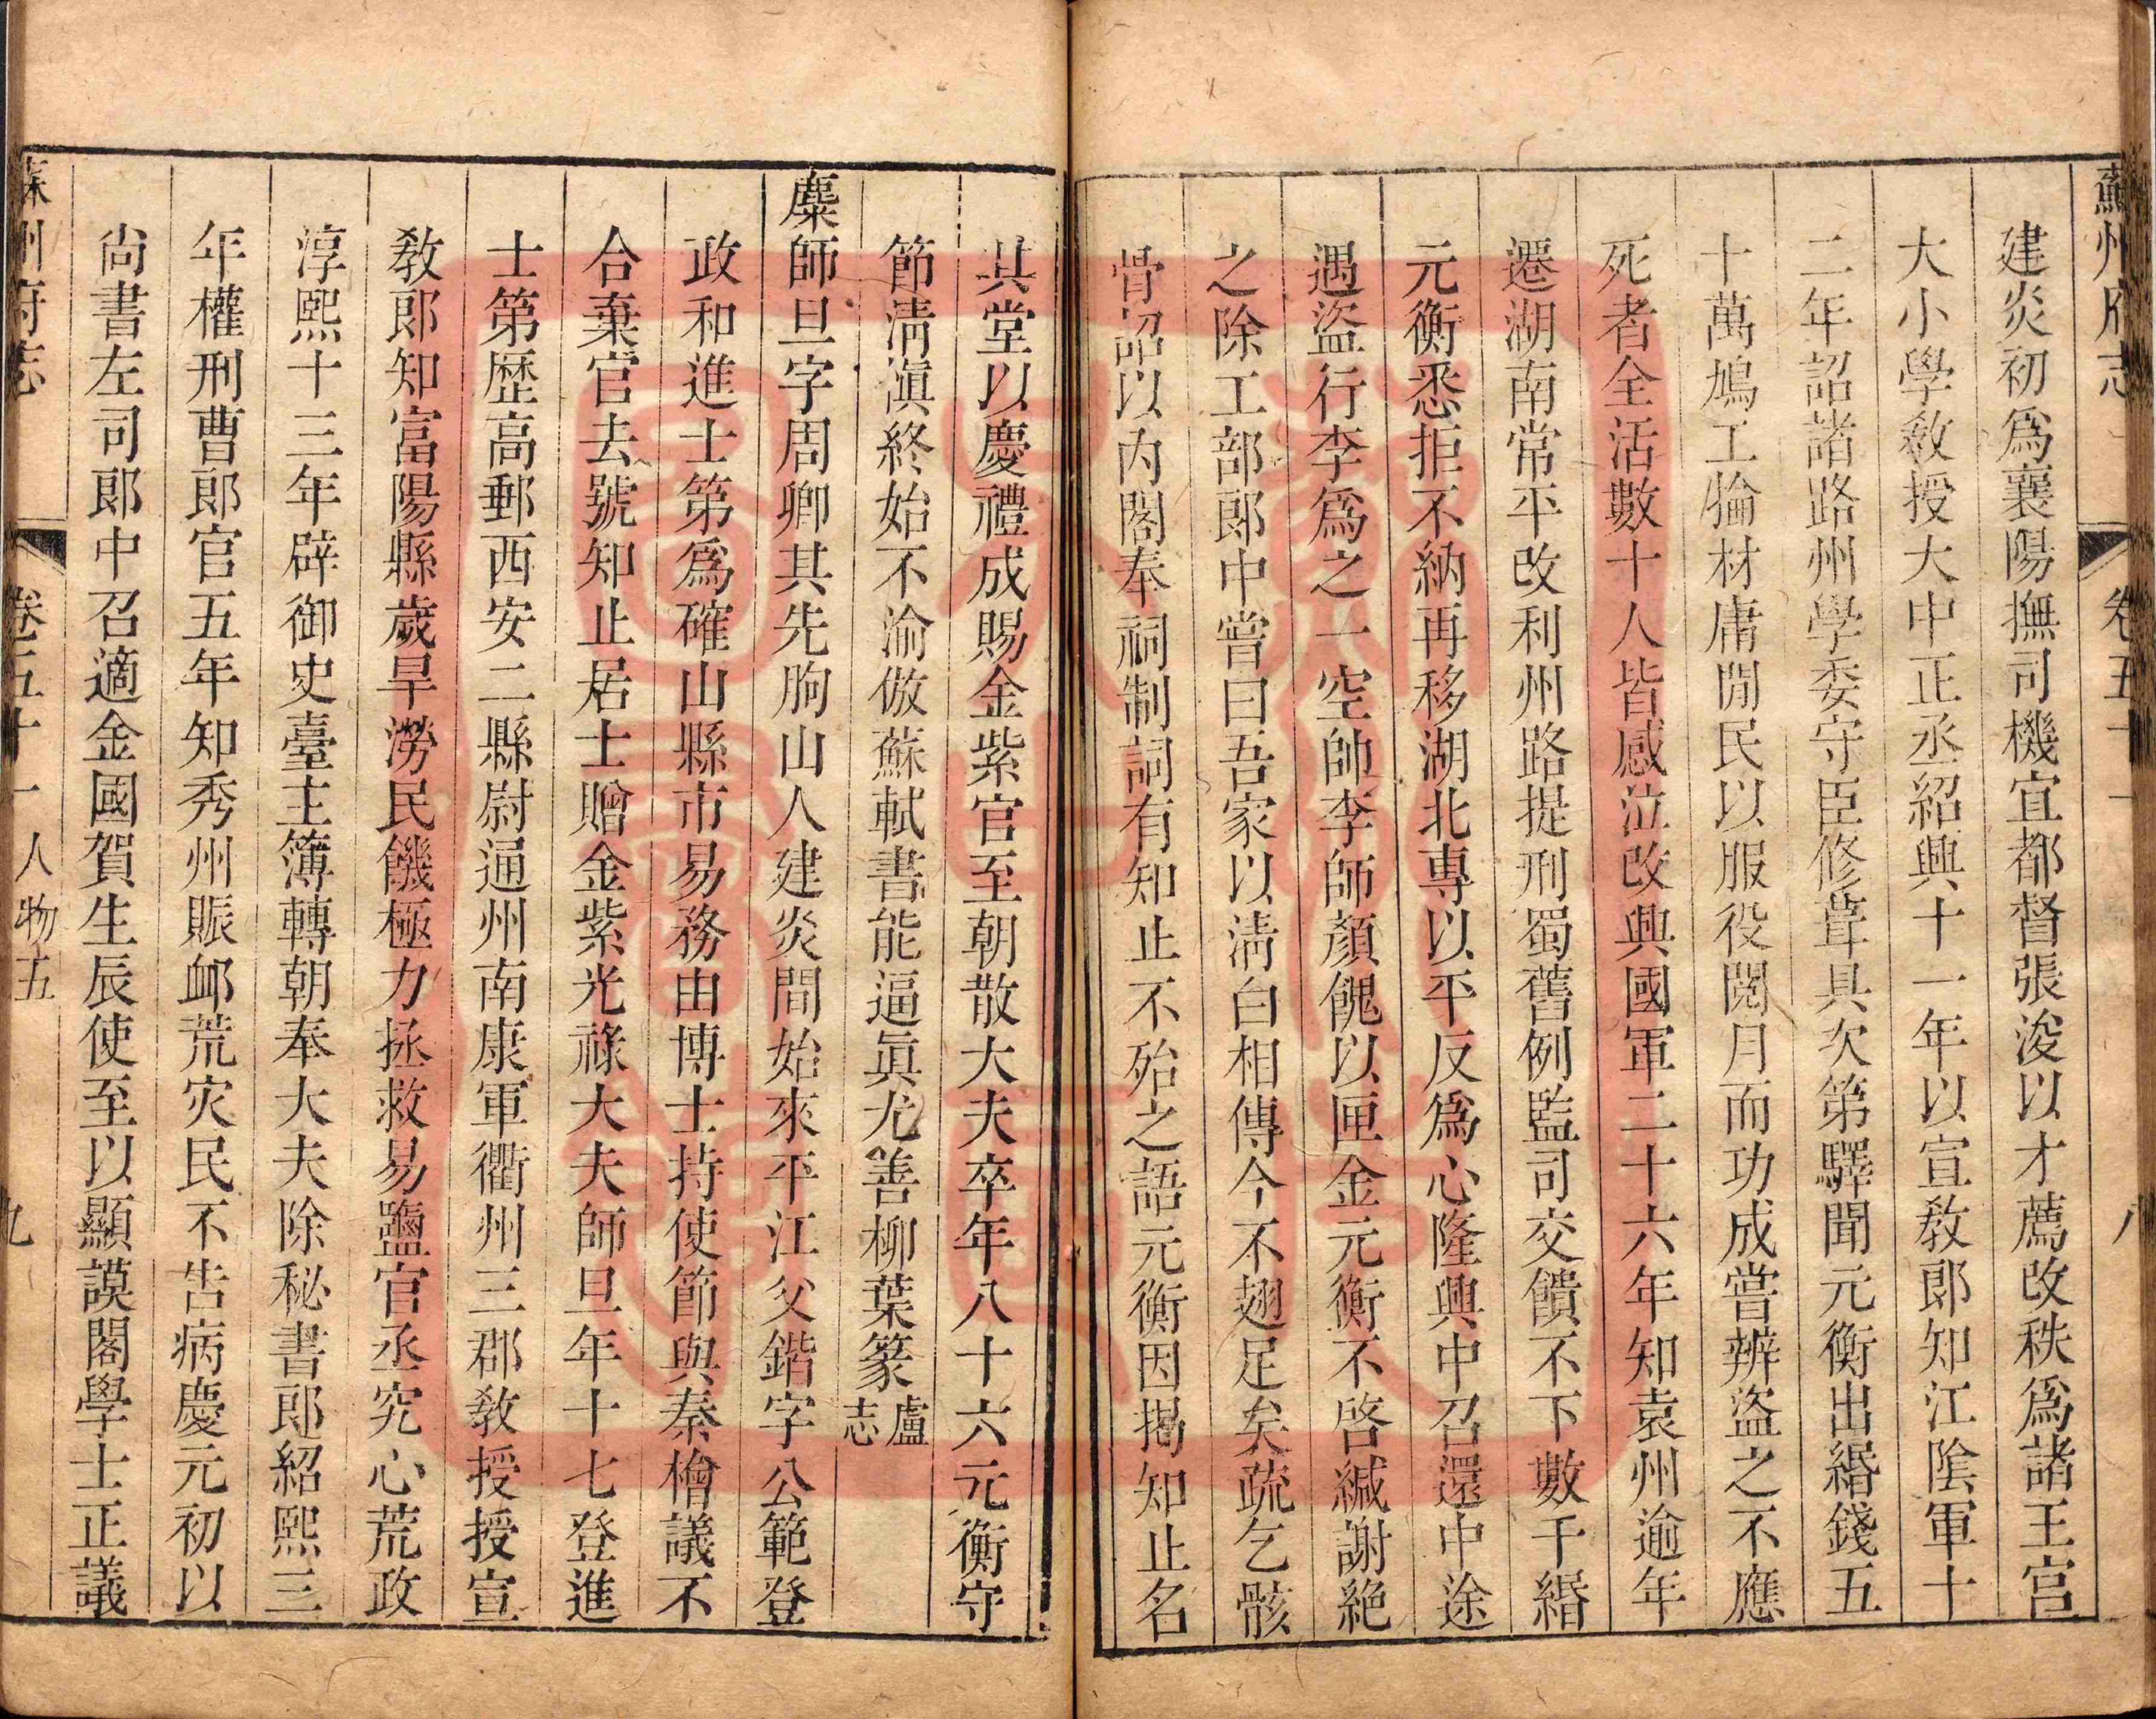 蘇州府志 卷五十一 八
建炎初爲襄陽撫司機宜都督張浚以才薦改秩爲諸王宫
大小學教授大中正丞紹興十一年以宣教郎知江陰軍十
二年詔諸路州學委守臣修葺具次第驛聞元衡出緡錢五
十萬鳩工掄材庸閒民以服役閱月而功成嘗辨盜之不應
死者全活數十人皆感泣改興國軍二十六年知袁州逾年
遷湖南常平改利州路提刑蜀舊例監司交饋不下數千緡
元衡悉拒不納再移湖北專以平反爲心隆興中召還中途
遇盜行李爲之一空帥李師顏餽以匣金元衡不啓緘謝絶
之除工部郎中嘗曰吾家以淸白相傳今不翅足矣疏乞骸
骨詔以内閣奉祠制詞有知止不殆之語元衡因揭知止名
其堂以慶禮成賜金紫官至朝散大夫卒年八十六元衡守
節淸滇終始不渝倣蘇軾書能逼眞尤善柳葉篆盧志
麋師旦字周卿其先朐山人建炎間始來平江父鍇字公範登
政和進士第爲確山縣市易務由博士持使節與秦檜議不
合棄官去號知止居士贈金紫光祿大夫師旦年十七登進
士第歷高郵西安二縣尉通州南康軍衢州三郡教授授宣
教郎知富陽縣歲旱澇民饑極力拯救易鹽官丞究心荒政
淳熙十三年辟御史臺主簿轉朝奉大夫除秘書郎紹熙三
年權刑曹郎官五年知秀州賑卹荒灾民不告病慶元初以
尙書左司郎中召適金國賀生辰使至以顯謨閣學士正議
蘇州府志 卷五十一 人物五 九